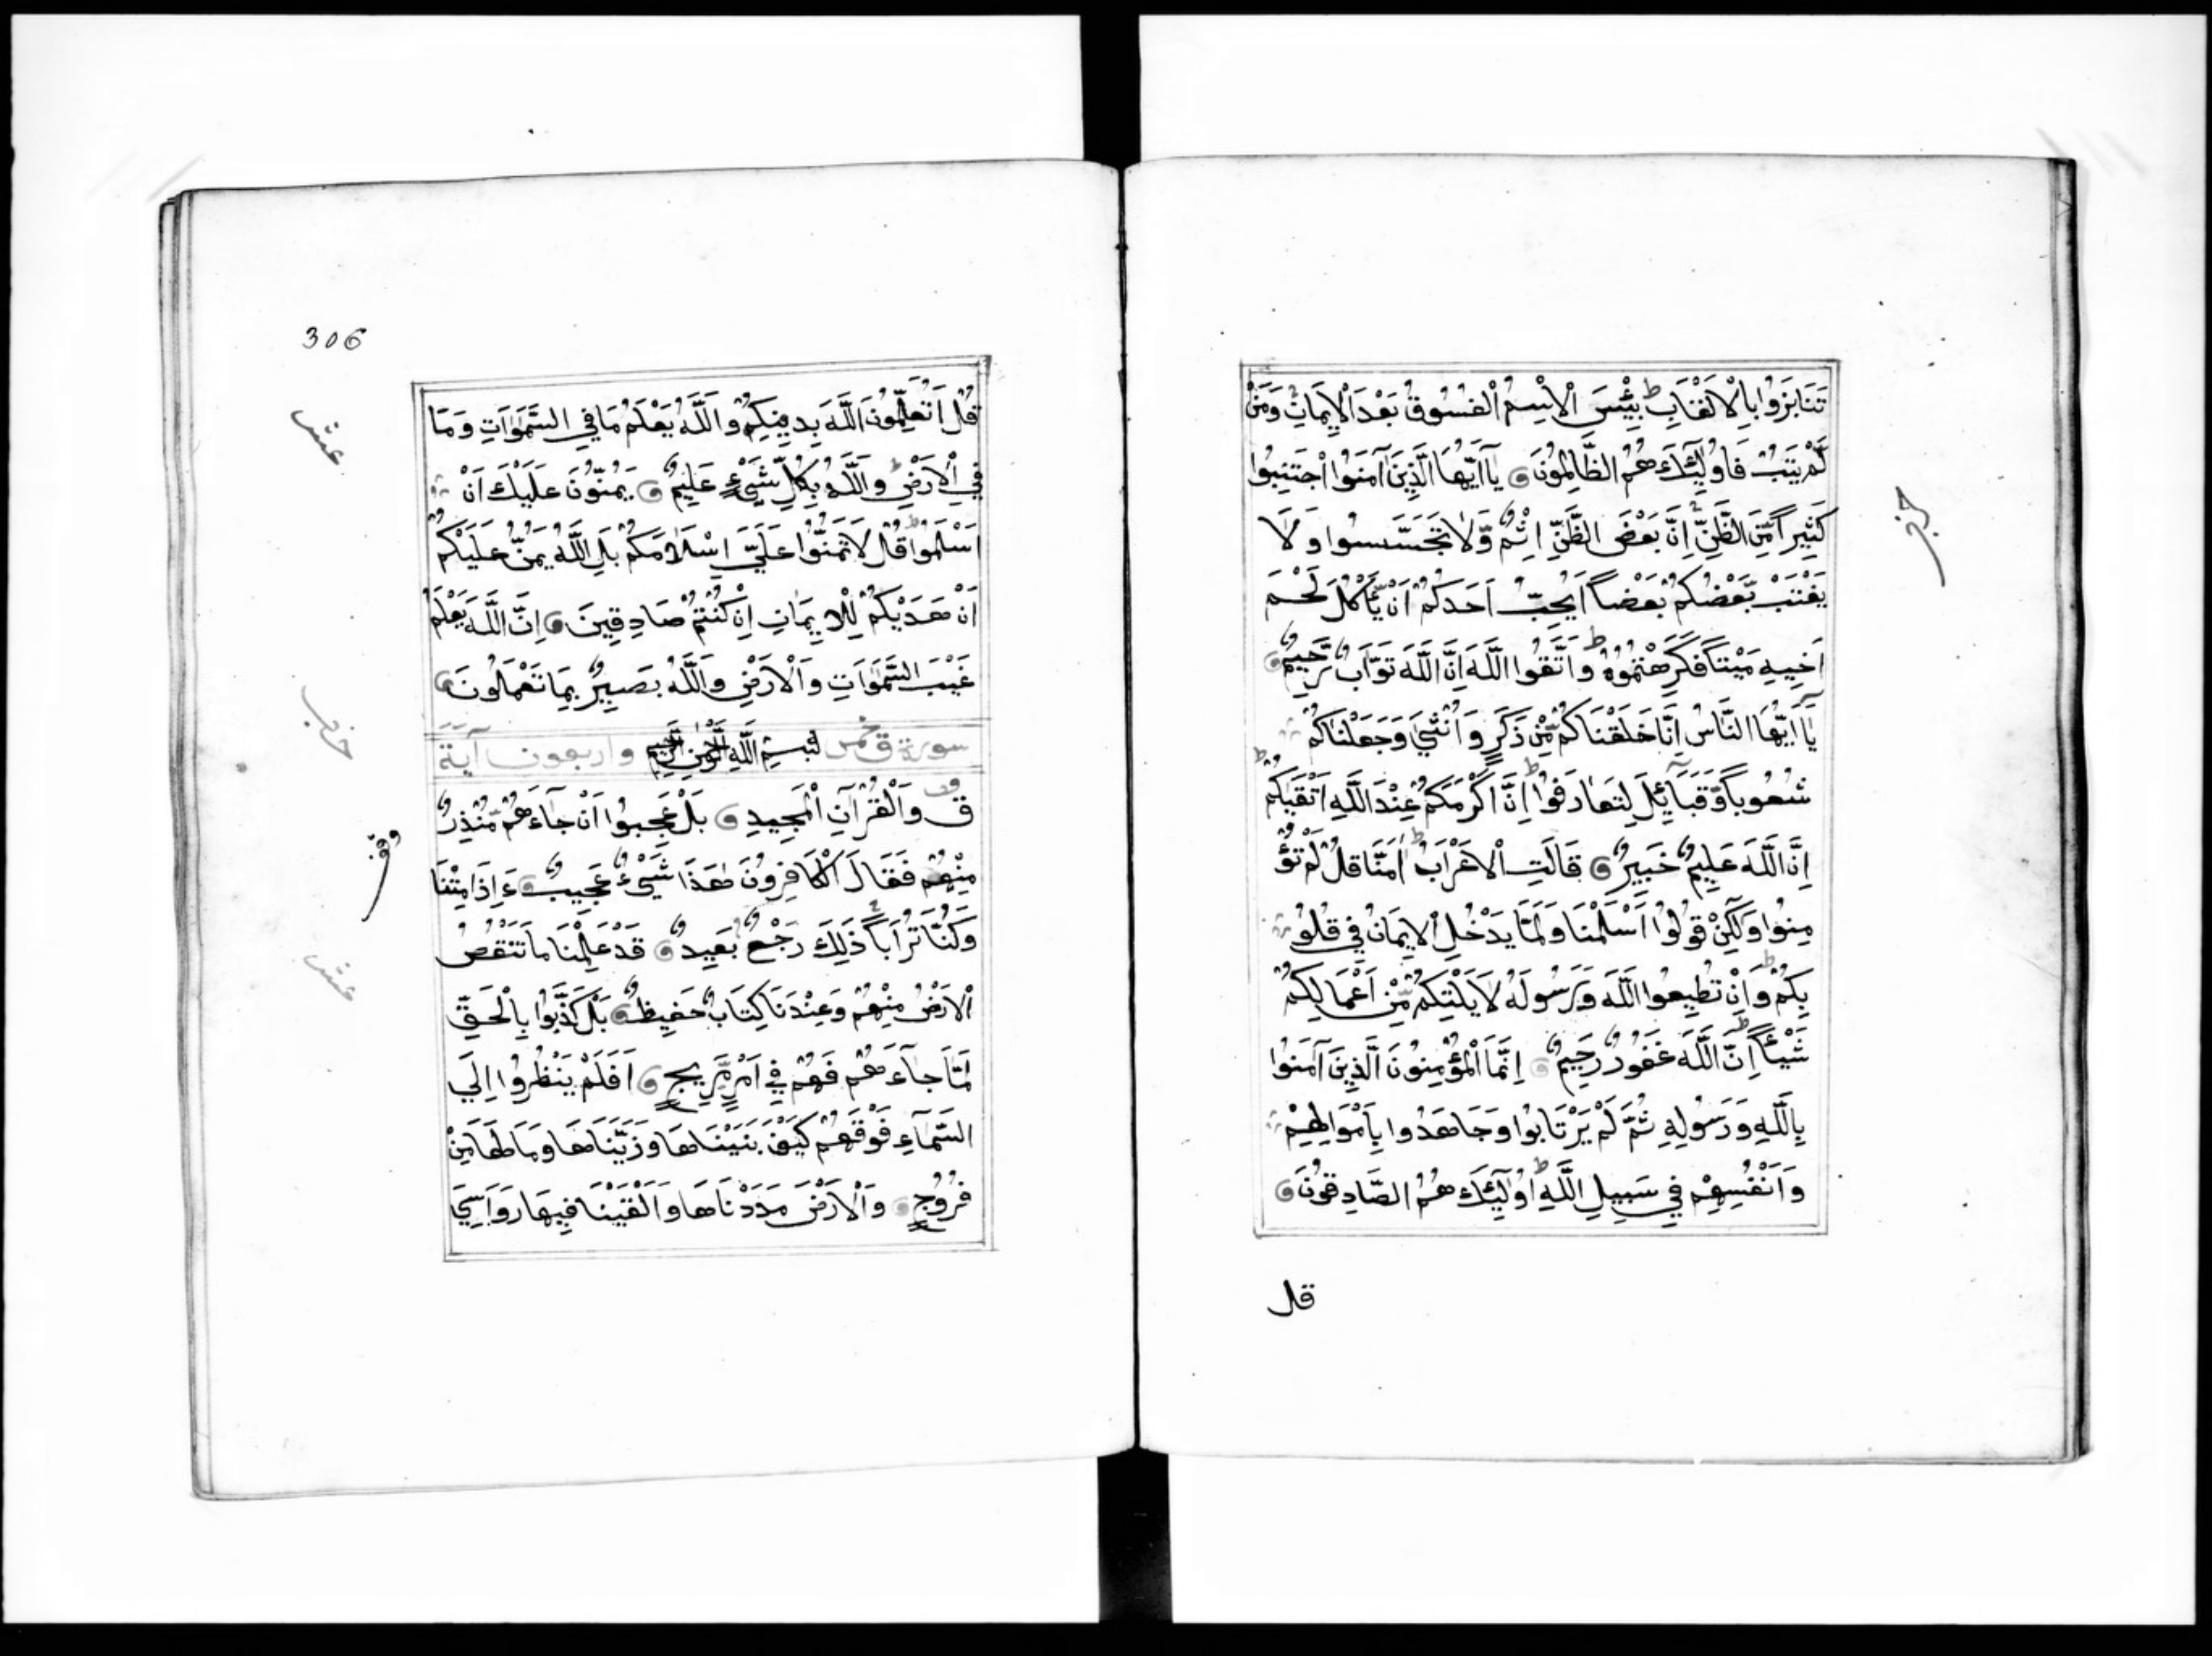 تَنَابَزُوا بِالْاَلْقَابِ ط بِئْسَ الْاِسْمُ الْفُسُوقُ بَعْدَ الْاِيمَانِ وَمَنْ
لَمْ يَتُبْ فَاُولَٓئِكَ هُمُ الظَّالِمُونَ يَآ اَيُّهَا الَّذِينَ آمَنُوا اجْتَنِبُوا
كَثِيرًا مِّنَ الظَّنِّ اِنَّ بَعْضَ الظَّنِّ اِثْمٌ وَّلَا تَجَسَّسُوا وَلَا
يَغْتَبْ بَّعْضُكُمْ بَعْضًا اَيُحِبُّ اَحَدُكُمْ اَنْ يَّأْكُلَ لَحْمَ
اَخِيهِ مَيْتًا فَكَرِهْتُمُوهُ ط وَاتَّقُوا اللَّهَ اِنَّ اللَّهَ تَوَّابٌ رَّحِيمٌ
يَآ اَيُّهَا النَّاسُ اِنَّا خَلَقْنَاكُمْ مِّنْ ذَكَرٍ وَاُنْثَىٰ وَجَعَلْنَاكُمْ
شُعُوبًا وَّقَبَآئِلَ لِتَعَارَفُوا ط اِنَّ اَكْرَمَكُمْ عِنْدَ اللَّهِ اَتْقٰيكُمْ ط
اِنَّ اللَّهَ عَلِيمٌ خَبِيرٌ قَالَتِ الْاَعْرَابُ اٰمَنَّا ط قُلْ لَمْ تُؤْ
مِنُوا وَلٰكِنْ قُولُوا اَسْلَمْنَا وَلَمَّا يَدْخُلِ الْاِيمَانُ فِي قُلُو
بِكُمْ ط وَاِنْ تُطِيعُوا اللَّهَ وَرَسُولَهُ لَا يَلِتْكُمْ مِّنْ اَعْمَالِكُمْ
شَيْئًا ط اِنَّ اللَّهَ غَفُورٌ رَحِيمٌ اِنَّمَا الْمُؤْمِنُونَ الَّذِينَ آمَنُوا
بِاللَّهِ وَرَسُولِهِ ثُمَّ لَمْ يَرْتَابُوا وَجَاهَدُوا بِاَمْوَالِهِمْ
وَاَنْفُسِهِمْ فِي سَبِيلِ اللَّهِ ط اُولَٓئِكَ هُمُ الصَّادِقُونَ
قل
حزب
306
قُلْ اَتُعَلِّمُونَ اللَّهَ بِدِينِكُمْ وَاللَّهُ يَعْلَمُ مَا فِي السَّمَوَاتِ وَمَا
فِي الْاَرْضِ ط وَاللَّهُ بِكُلِّ شَيْءٍ عَلِيمٌ يَمُنُّونَ عَلَيْكَ اَنْ
اَسْلَمُوا ط قُلْ لَا تَمُنُّوا عَلَيَّ اِسْلَامَكُمْ بَلِ اللَّهُ يَمُنُّ عَلَيْكُمْ
اَنْ هَدٰيكُمْ لِلْاِيمَانِ اِنْ كُنْتُمْ صَادِقِينَ اِنَّ اللَّهَ يَعْلَمُ
غَيْبَ السَّمَوَاتِ وَالْاَرْضِ وَاللَّهُ بَصِيرٌ بِمَا تَعْمَلُونَ
سورة ق خمس بِسْمِ اللَّهِ الرَّحْمٰنِ الرَّحِيمِ واربعون آية
ق وَالْقُرْاٰنِ الْمَجِيدِ بَلْ عَجِبُوا اَنْ جَآءَهُمْ مُّنْذِرٌ
مِنْهُمْ فَقَالَ الْكَافِرُونَ هٰذَا شَيْءٌ عَجِيبٌ ءَاِذَا مِتْنَا
وَكُنَّا تُرَابًا ذَلِكَ رَجْعٌ بَعِيدٌ قَدْ عَلِمْنَا مَا تَنْقُصُ
الْاَرْضُ مِنْهُمْ وَعِنْدَنَا كِتَابٌ حَفِيظٌ بَلْ كَذَّبُوا بِالْحَقِّ
لَمَّا جَآءَهُمْ فَهُمْ فِي اَمْرٍ مَّرِيجٍ اَفَلَمْ يَنْظُرُوا اِلَى
السَّمَآءِ فَوْقَهُمْ كَيْفَ بَنَيْنَاهَا وَزَيَّنَّاهَا وَمَا لَهَا مِنْ
فُرُوجٍ وَالْاَرْضَ مَدَدْنَاهَا وَاَلْقَيْنَا فِيهَا رَوَاسِيَ
عشر
حزب
عشر